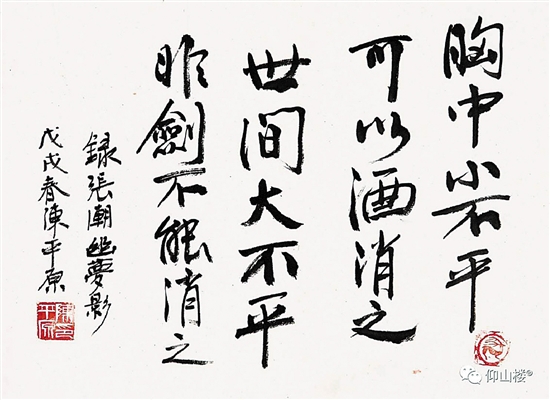 胸中小不平
可以酒消之
世間大不平
非劍不能消之
録張潮幽夢影
戊戌春陳平原
仰山楼